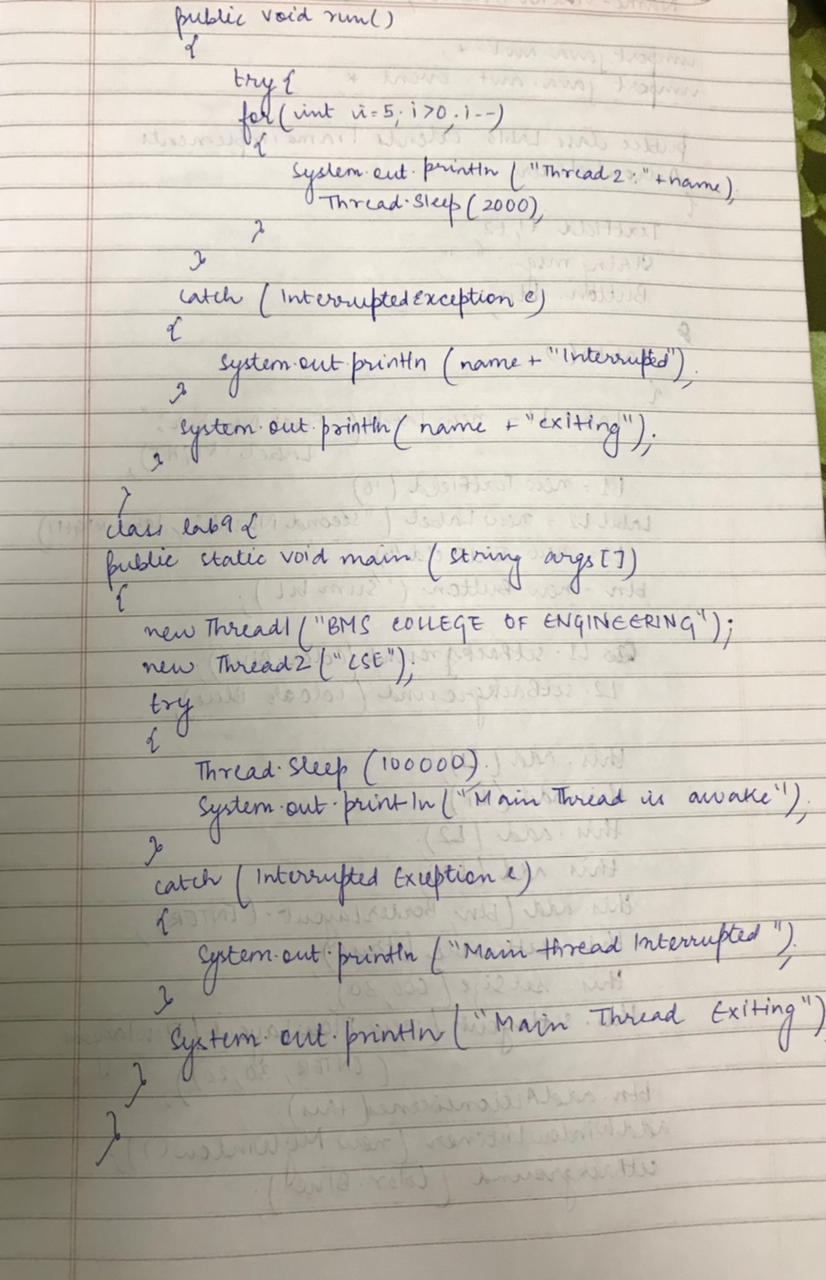 public void run()
{
try {
for(int i=5; i>0; i--)
{
System.out.println ("Thread 2:"+name);
Thread.Sleep(2000);
}
}
catch (InterruptedException e)
{
System.out.println (name + "Interrupted");
}
System.out.println( name + "exiting");
}
}
class lab9 {
public static void main (String args[])
{
new Thread1 ("BMS COLLEGE OF ENGINEERING");
new Thread2 ("CSE");
try
{
Thread.Sleep (100000);
System.out.println ("Main Thread is awake");
}
catch (Interrupted Exception e)
{
System.out.println ("Main thread Interrupted ");
}
System.out.println ("Main Thread Exiting")
}
}